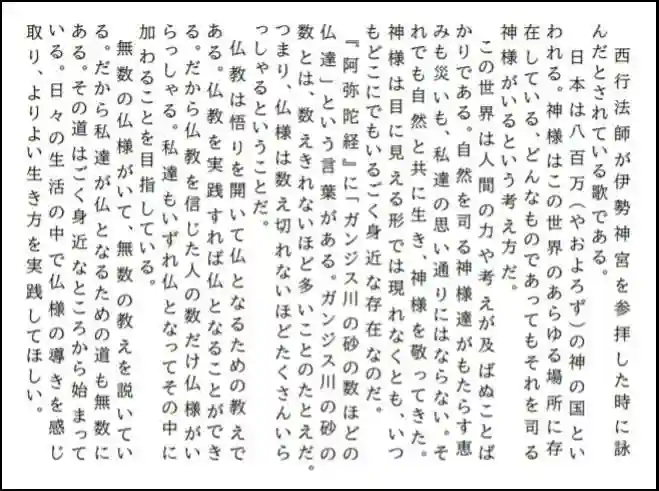 西行法師が伊勢神宮を参拝した時に詠
んだとされている歌である。
日本は八百万（やおよろず）の神の国とい
われる。神様はこの世界のあらゆる場所に存
在している、どんなものであってもそれを司る
神様がいるという考え方だ。
この世界は人間の力や考えが及ばぬことば
かりである。自然を司る神様達がもたらす恵
みも災いも、私達の思い通りにはならない。そ
れでも自然と共に生き、神様を敬ってきた。
神様は目に見える形では現れなくとも、いつ
もどこにでもいるごく身近な存在なのだ。
『阿弥陀経』に「ガンジス川の砂の数ほどの
仏達」という言葉がある。ガンジス川の砂の
数とは、数えきれないほど多いことのたとえだ。
つまり、仏様は数え切れないほどたくさんいら
っしゃるということだ。
仏教は悟りを開いて仏となるための教えで
ある。仏教を実践すれば仏となることができ
る。だから仏教を信じた人の数だけ仏様がい
らっしゃる。私達もいずれ仏となってその中に
加わることを目指している。
無数の仏様がいて、無数の教えを説いてい
る。だから私達が仏となるための道も無数に
ある。その道はごく身近なところから始まって
いる。日々の生活の中で仏様の導きを感じ
取り、よりよい生き方を実践してほしい。